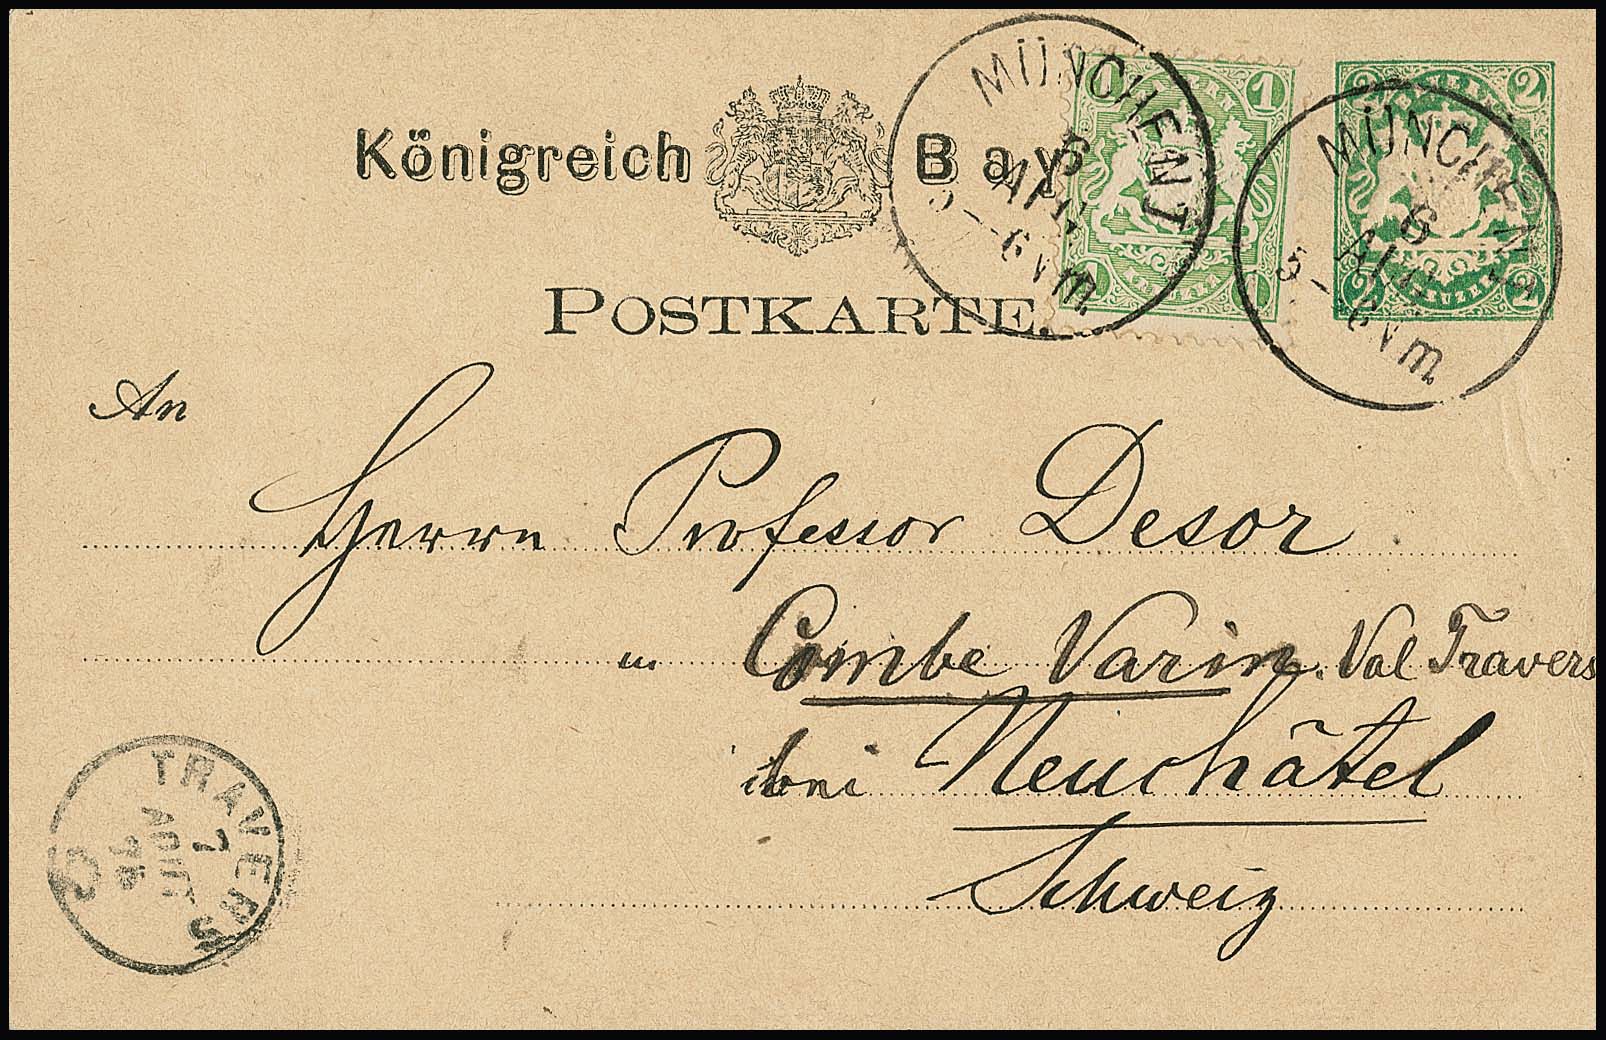 Königreich Bay
POSTKARTE.
1 1
1 1
2 2
2 2
MÜNCHEN I
6
5-6 Vm.
MÜNCHEN
6
5-6 Vm.
An
Herrn Professor Desor
in Combe Varin. Val Travers
bei Neuchâtel
Schweiz
TRAVERS
7
AOUT